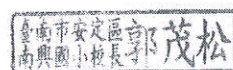 臺南市安定區
南興國小校長郭茂松